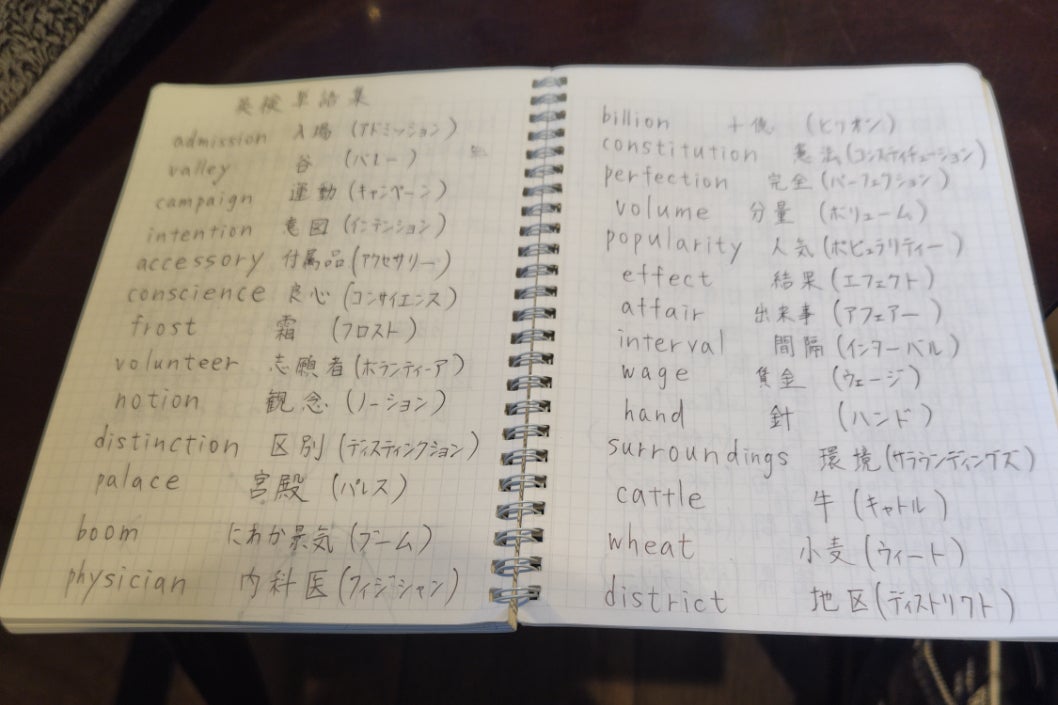 英検単語集
admission 入場 (アドミッション)
valley 谷 (バレー)
campaign 運動 (キャンペーン)
intention 意図 (インテンション)
accessory 付属品 (アクセサリー)
conscience 良心 (コンサイエンス)
frost 霜 (フロスト)
volunteer 志願者 (ボランティーア)
notion 観念 (ノーション)
distinction 区別 (ディスティンクション)
palace 宮殿 (パレス)
boom にわか景気 (ブーム)
physician 内科医 (フィジシャン)
billion 十億 (ビリオン)
constitution 憲法 (コンスティチューション)
perfection 完全 (パーフェクション)
volume 分量 (ボリューム)
popularity 人気 (ポピュラリティー)
effect 結果 (エフェクト)
affair 出来事 (アフェアー)
interval 間隔 (インターバル)
wage 賃金 (ウェージ)
hand 針 (ハンド)
surroundings 環境 (サラウンディングズ)
cattle 牛 (キャトル)
wheat 小麦 (ウィート)
district 地区 (ディストリクト)